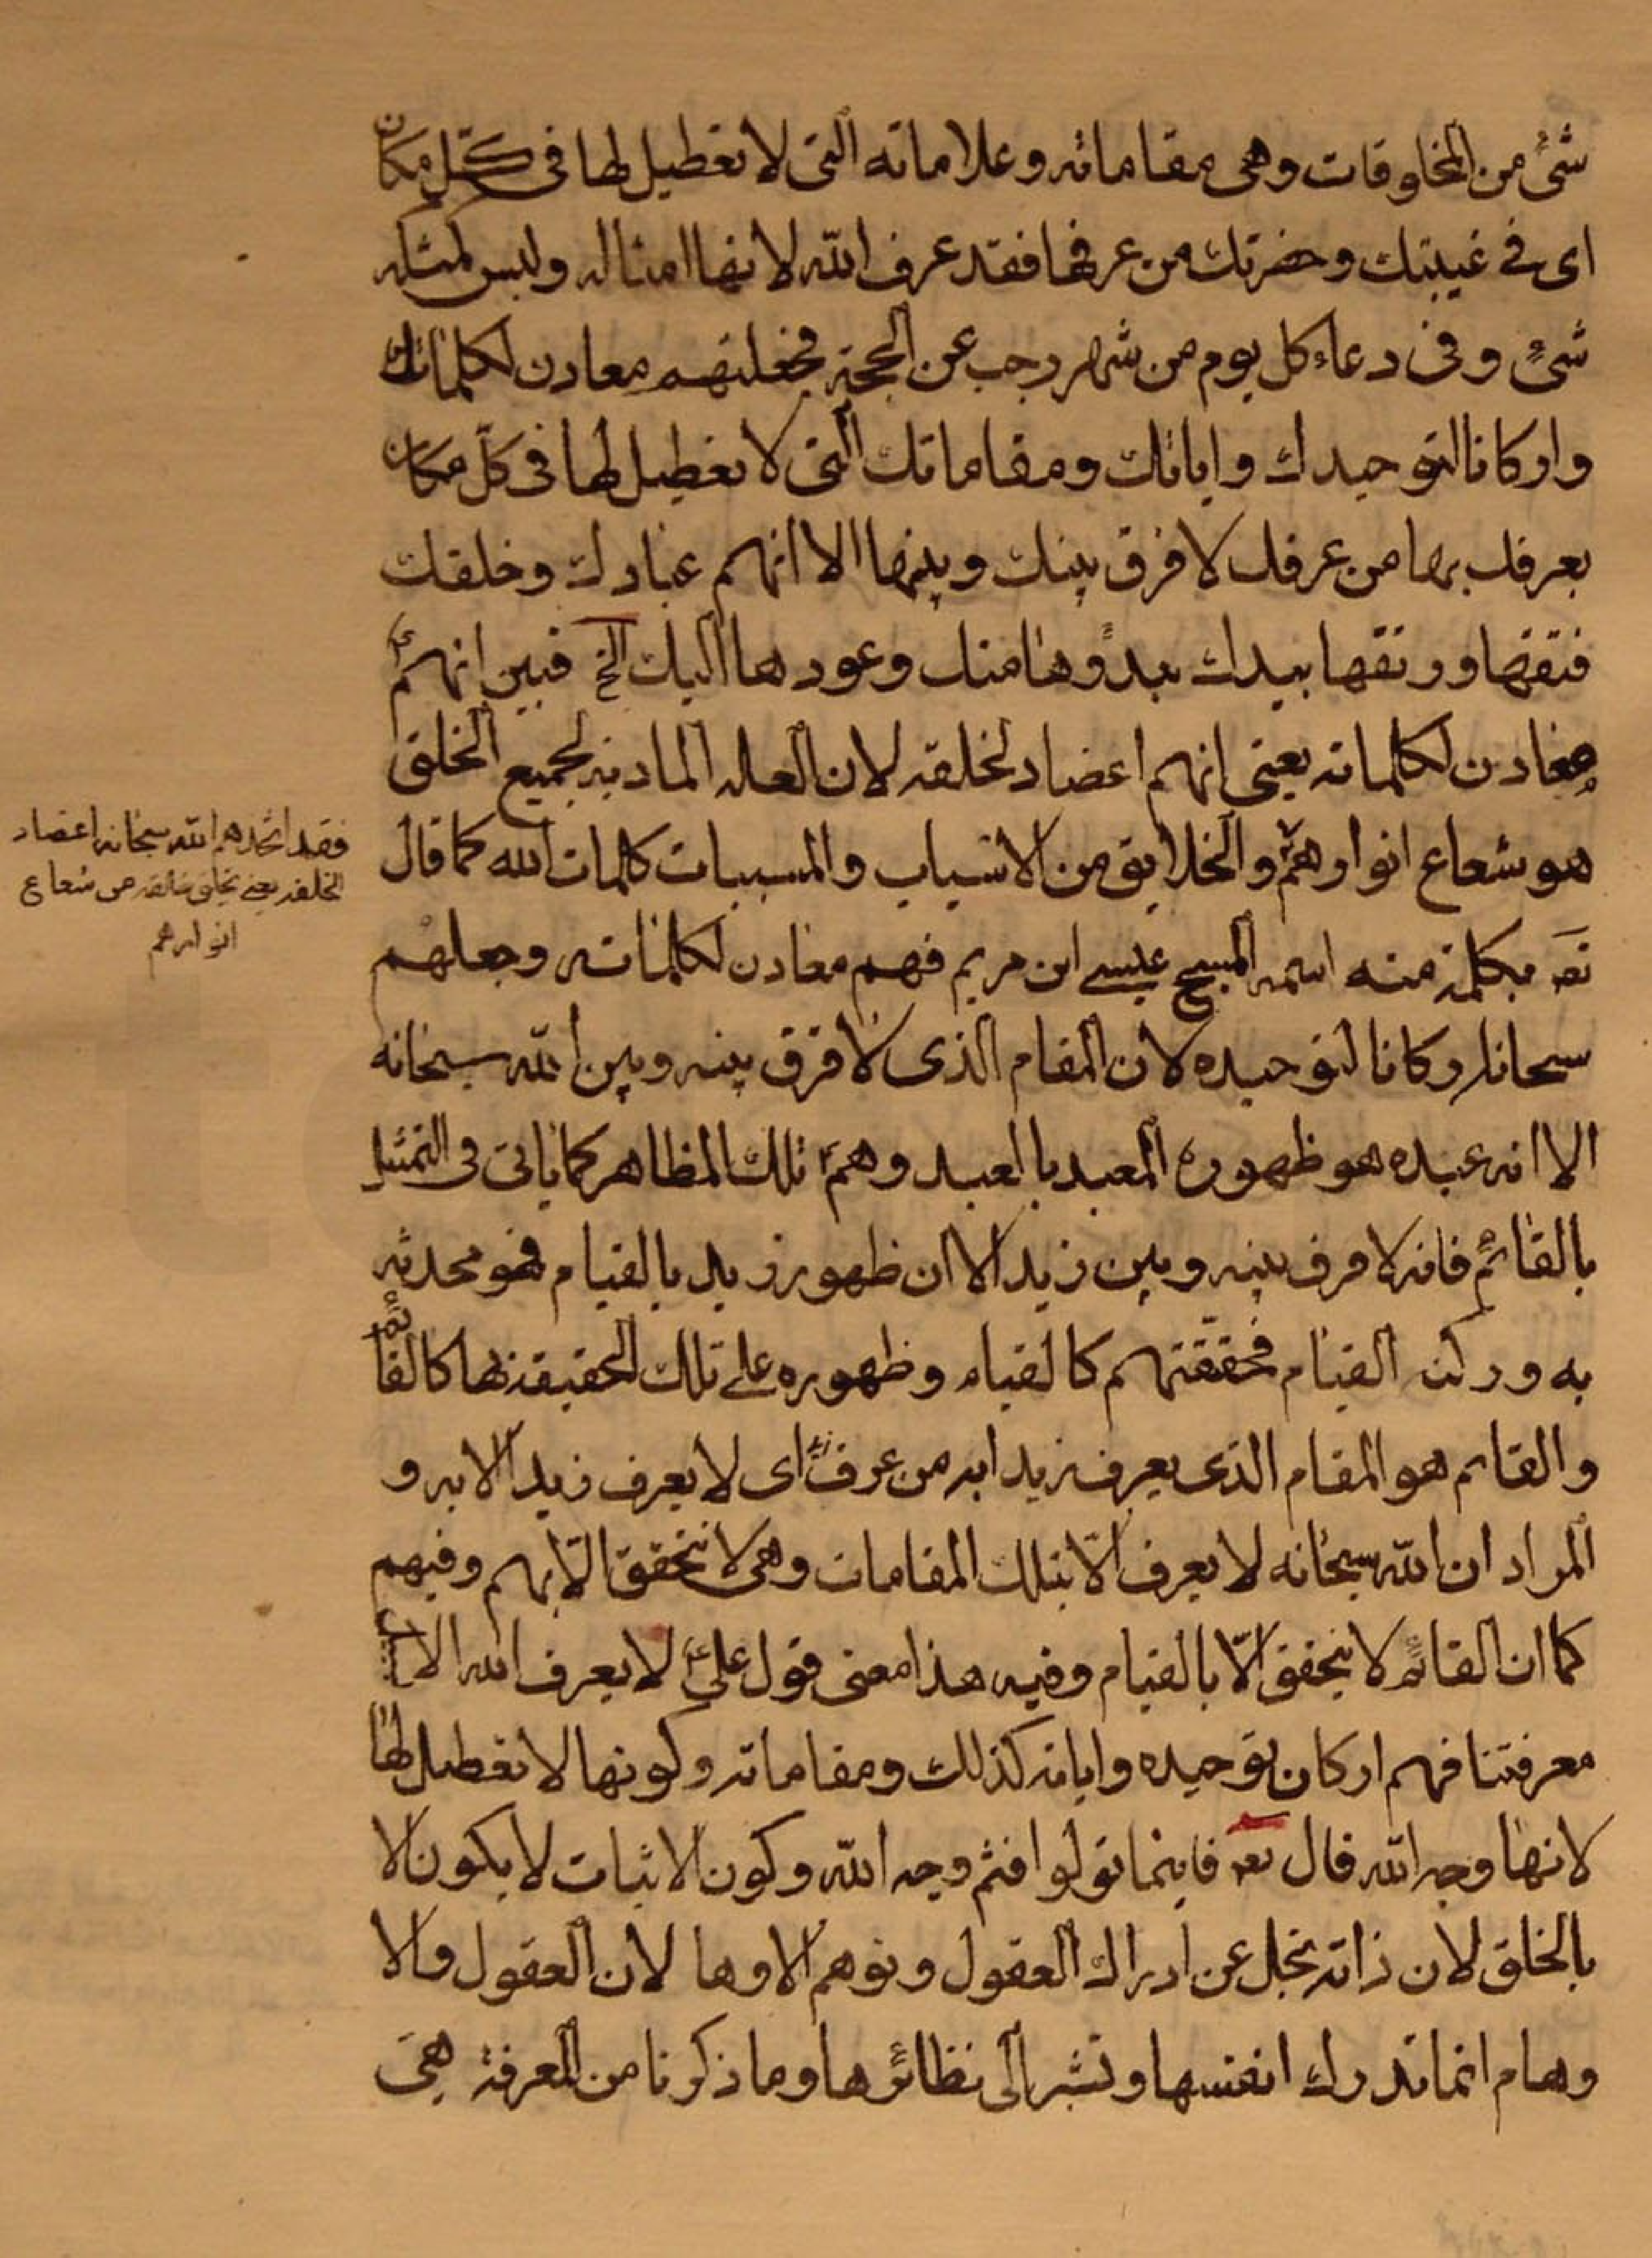 شئ من المخلوقات وهى مقاماته وعلاماته التى لا تعطيل لها فى كل مكان
اى فى غيبتك وحضرتك من عرفها فقد عرف الله لانها امثاله وليس كمثله
شئ وفى دعاء كل يوم من شهر رجب عن الحجة فجعلتهم معادن لكلماتك
واركانا لتوحيدك واياتك ومقاماتك التى لا تعطيل لها فى كل مكان
يعرفك بها من عرفك لا فرق بينك وبينها الا انهم عبادك وخلقك
فتقها ورتقها بيدك بدؤها منك وعودها اليك الخ فبين انهم
معادن لكلماته يعنى انهم اعضاد لخلقه لان العله الماديه لجميع الخلق
هو شعاع انوارهم والخلايق من الاسباب والمسببات كلمات الله كما قال
تع بكلمة منه اسمه المسيح عيسى ابن مريم فهم معادن لكلماته وجعلهم
سبحانه اركانا لتوحيده لان المقام الذى لا فرق بينه وبين الله سبحانه
الا انه عبده هو ظهوره المعبد بالعبد وهم تلك المظاهر كما ياتى فى التمثيل
بالقائم فانه لا فرق بينه وبين زيد الا ان ظهور زيد بالقيام فهو محدثه
به وركنه القيام فحقيقتهم كالقيام وظهوره على تلك الحقيقة بها كالقائم
والقائم هو المقام الذى يعرف زيدا به من عرف اى لا يعرف زيد الا به و
المراد ان الله سبحانه لا يعرف الا بتلك المقامات وهى لا تتحقق الا بهم وفيهم
كما ان القائم لا يتحقق الا بالقيام وفيه هذا معنى قول على لا يعرف الله الا
معرفتنا فهم اركان توحيده واياته كذلك ومقاماته وكونها لا تعطيل لها
لانها وجه الله قال تع فاينما تولوا فثم وجه الله وكون الاثبات لا يكون الا
بالخلق لان ذاته تجل عن ادراك العقول وتوهم الاوها لان العقول والا
وهام انما تدرك انفسها وتشير الى نظائرها وما ذكرنا من المعرفة هى
فقد اتخذهم الله سبحانه اعضاد
لخلقه يعنى يخلق خلقه من شعاع
انوارهم